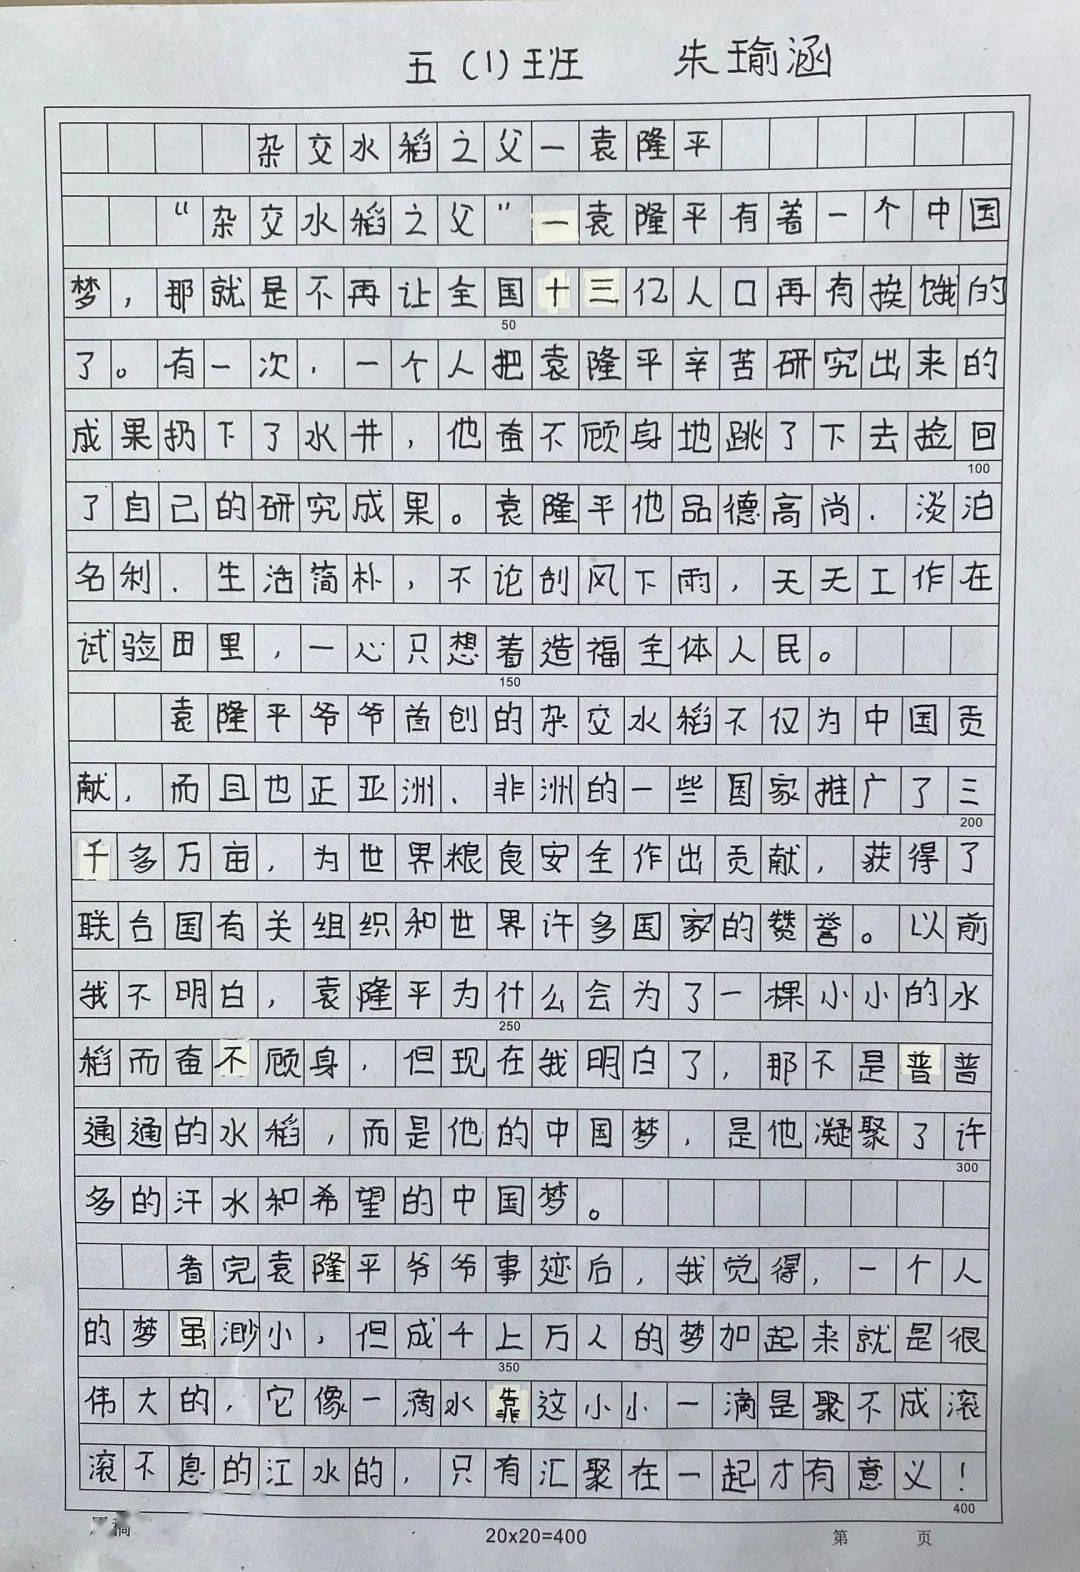 五(1)班 朱瑜涵
杂交水稻之父一袁隆平
“杂交水稻之父”一袁隆平有着一个中国
梦,那就是不再让全国十三亿人口再有挨饿的
50
了。有一次,一个人把袁隆平辛苦研究出来的
成果扔下了水井,他奋不顾身地跳了下去捡回
100
了自己的研究成果。袁隆平他品德高尚、淡泊
名利、生活简朴,不论刮风下雨,天天工作在
试验田里,一心只想着造福全体人民。
150
袁隆平爷爷首创的杂交水稻不仅为中国贡
献,而且也正亚洲、非洲的一些国家推广了三
200
千多万亩,为世界粮食安全作出贡献,获得了
联合国有关组织和世界许多国家的赞誉。以前
我不明白,袁隆平为什么会为了一棵小小的水
250
稻而奋不顾身,但现在我明白了,那不是普普
通通的水稻,而是他的中国梦,是他凝聚了许
300
多的汗水和希望的中国梦。
看完袁隆平爷爷事迹后,我觉得,一个人
的梦虽渺小,但成千上万人的梦加起来就是很
350
伟大的,它像一滴水靠这小小一滴是聚不成滚
滚不息的江水的,只有汇聚在一起才有意义!
400
稿 20x20=400 第 页